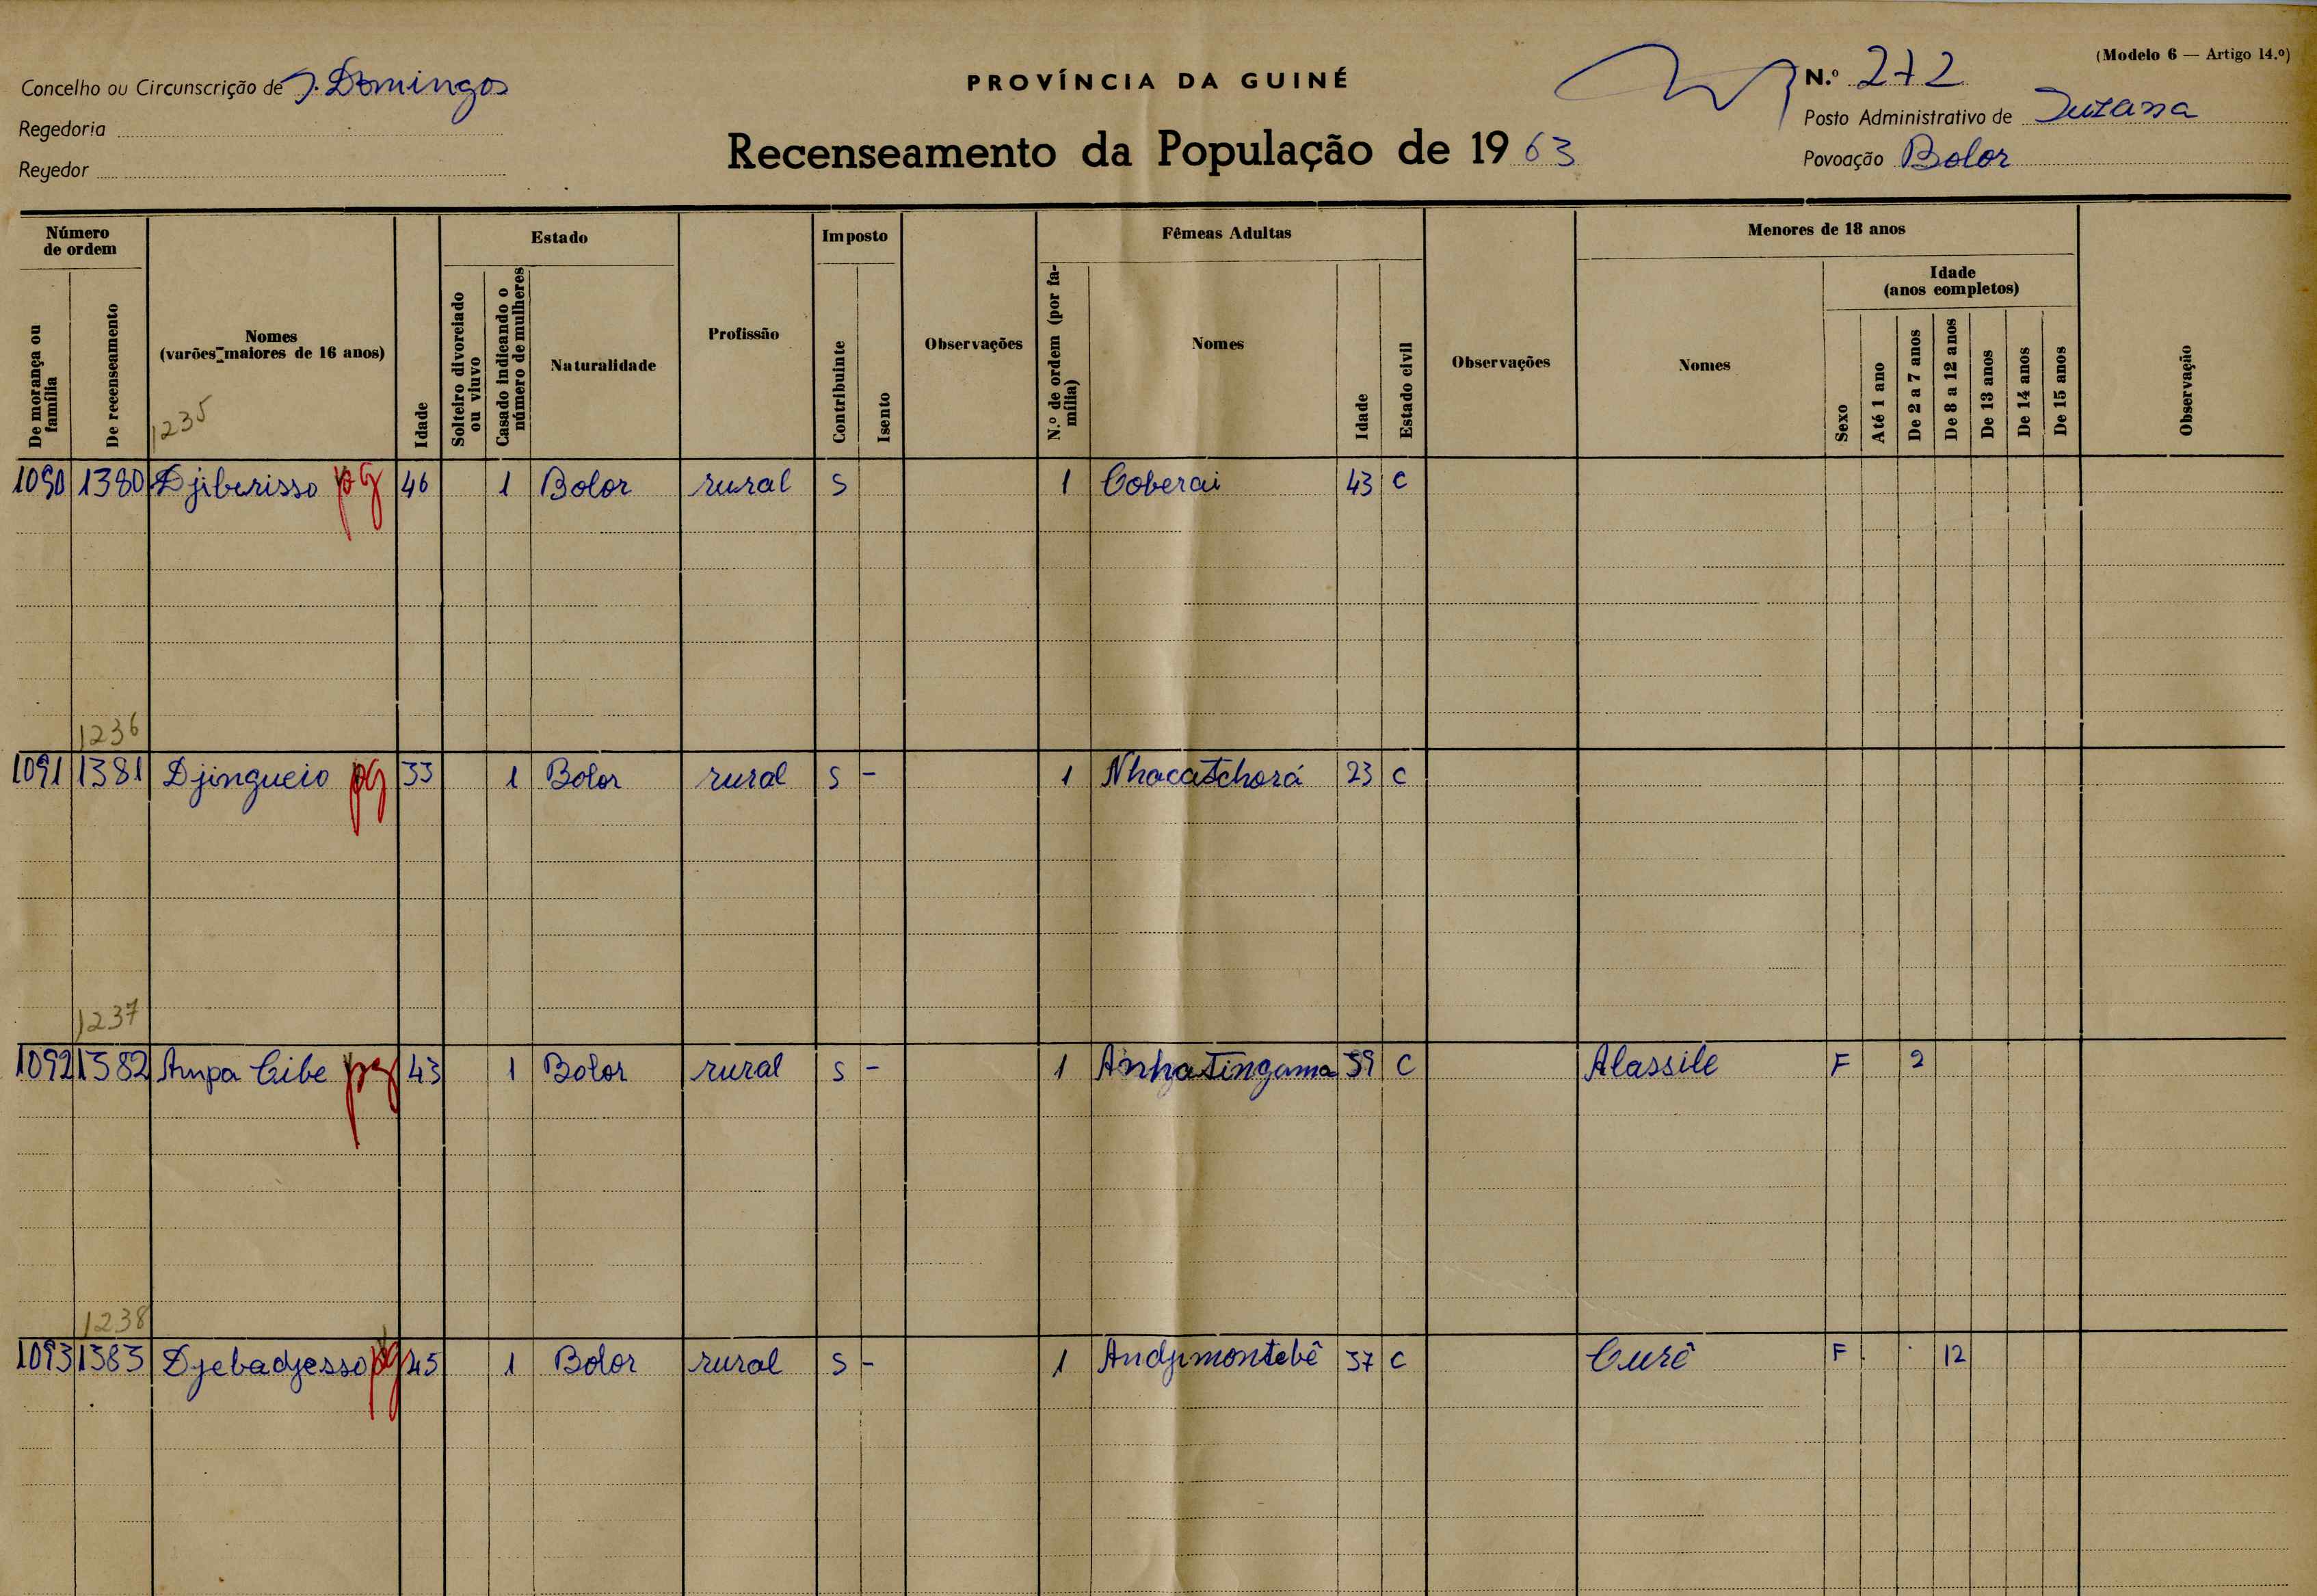 (Modelo 6 — Artigo 14.º)
Concelho ou Circunscrição de S. Domingos
PROVÍNCIA DA GUINÉ
N.º 272
Regedoria
Posto Administrativo de Suzana
Recenseamento da População de 1963
Regedor
Povoação Bolor
Número de ordem
Estado
Imposto
Fêmeas Adultas
Menores de 18 anos
Idade (anos completos)
De morança ou família
De recenseamento
Nomes (varões maiores de 16 anos)
Idade
Solteiro divorciado ou viuvo
Casado indicando o número de mulheres
Naturalidade
Profissão
Contribuinte
Isento
Observações
N.º de ordem (por família)
Nomes
Idade
Estado civil
Observações
Nomes
Sexo
Até 1 ano
De 2 a 7 anos
De 8 a 12 anos
De 13 anos
De 14 anos
De 15 anos
Observação
1235
1090 1380 Djiberisso pg 46 1 Bolor rural S 1 Coberai 43 C
1236
1091 1381 Djingueio pg 33 1 Bolor rural S - 1 Nhacatchorá 23 C
1237
1092 1382 Ampa Cibe pg 43 1 Bolor rural S - 1 Anhatingama 39 C Alassile F 2
1238
1093 1383 Djebadjesso pg 45 1 Bolor rural S - 1 Andjimontebê 37 C Curê F 12